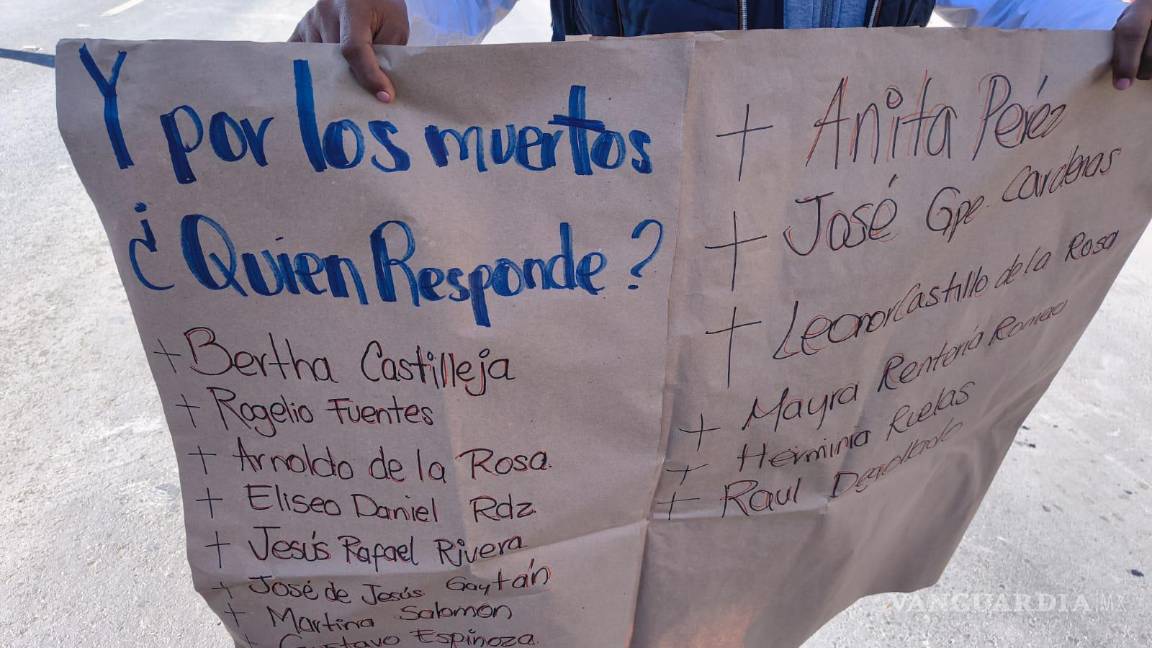 Y por los muertos
¿Quien Responde?
+ Bertha Castilleja
+ Rogelio Fuentes
+ Arnoldo de la Rosa.
+ Eliseo Daniel Rdz.
+ Jesús Rafael Rivera
+ José de Jesús Gaytán
+ Martina Salomon
+ Gustavo Espinoza.
+ Anita Peréz
+ José Gpe. Cardenas
+ Leonor Castillo de la Rosa
+ Mayra Rentería Romeo
+ Herminia Ruelas
+ Raul Degollado
VANGUARDIA MX